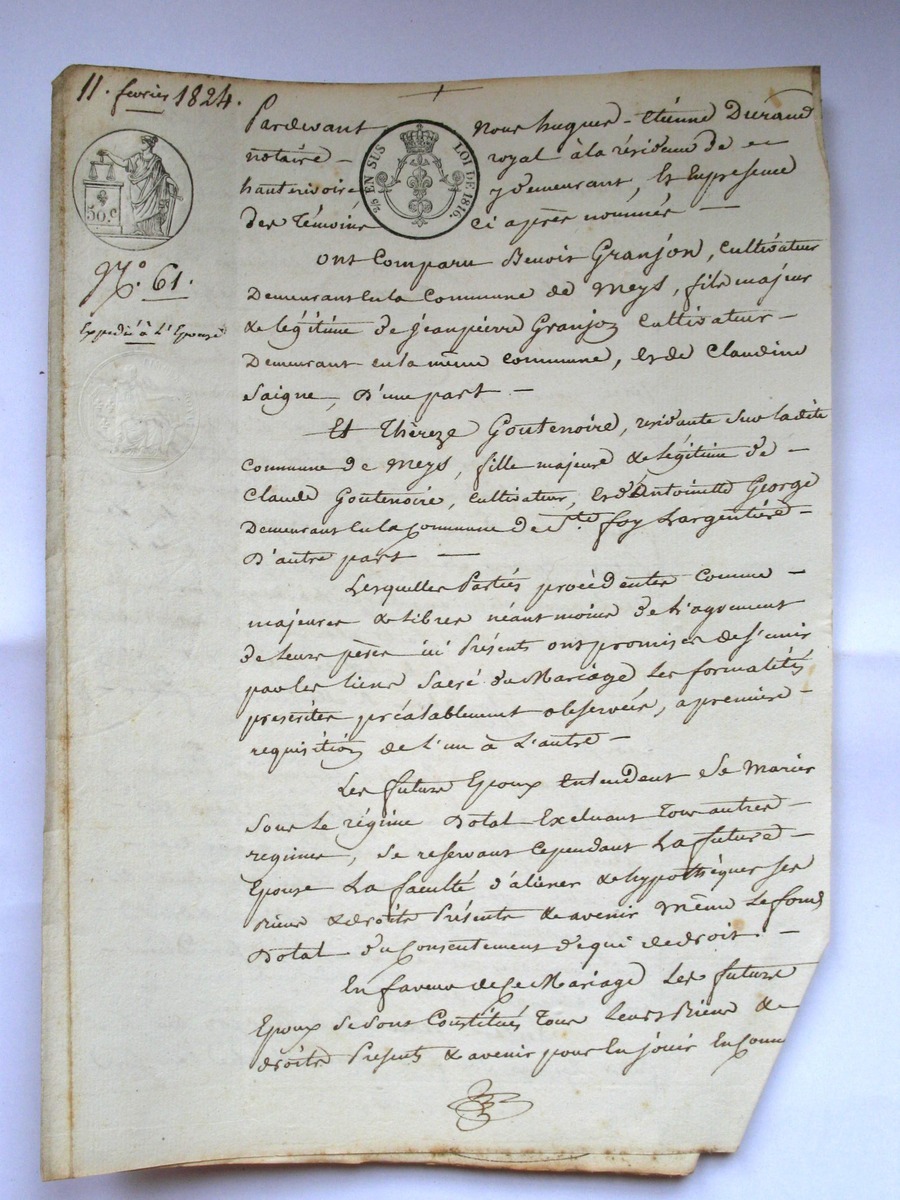 11. fevrier 1824.
Pardevant Nous hugues-Etiénne Durand
notaire – royal à la résidence de
hauterivoire y demeurant, Et Enpresence
des Témoins ci après nommés –
EN SUS LOI DE 1816.
50.c
N.o 61.
Expedié à L'Epouse
ont Comparu Benoit Granjon, Cultivateur
Demeurant En la Commune de Meys, fils majeur
& légitime de jeanpierre Granjon Cultivateur –
Demeurant en la même commune, & de Claudine
Saigne, D'une part –
Et Thérèze Goutenoire, residante sur ladite
Commune de Meys, fille majeure & légitime de –
Claude Goutenoire, cultivateur, & d'Antoinette George
Demeurant En la Commune de Ste foy Largentière –
D'autre part –
Lesquelles Partiés procédentes Comme –
majeures & libres néantmoins de l'agrement
de Leurs pères ici Présents ont promises de s'unir
par les liens Sacré du Mariage Les formalités
prescrites préalablement observées, a premiere –
requisition de l'un à L'autre –
Les future Epoux Entendent Se Marier
Sous Le régime Dotal Excluant Tous autres –
regimes, Se reservant Cependant La future –
Epouse La faculté d'aliéner & hypothéquer ses
Biens & droits Présents & avenir Même Le fond
Dotal du Consentement de qui de droit. –
En faveur de Ce Mariage Les future
Epoux Se Sont Constitués Tous Leurs Biens &
droits Présents & avenir pour En jouir En Comm